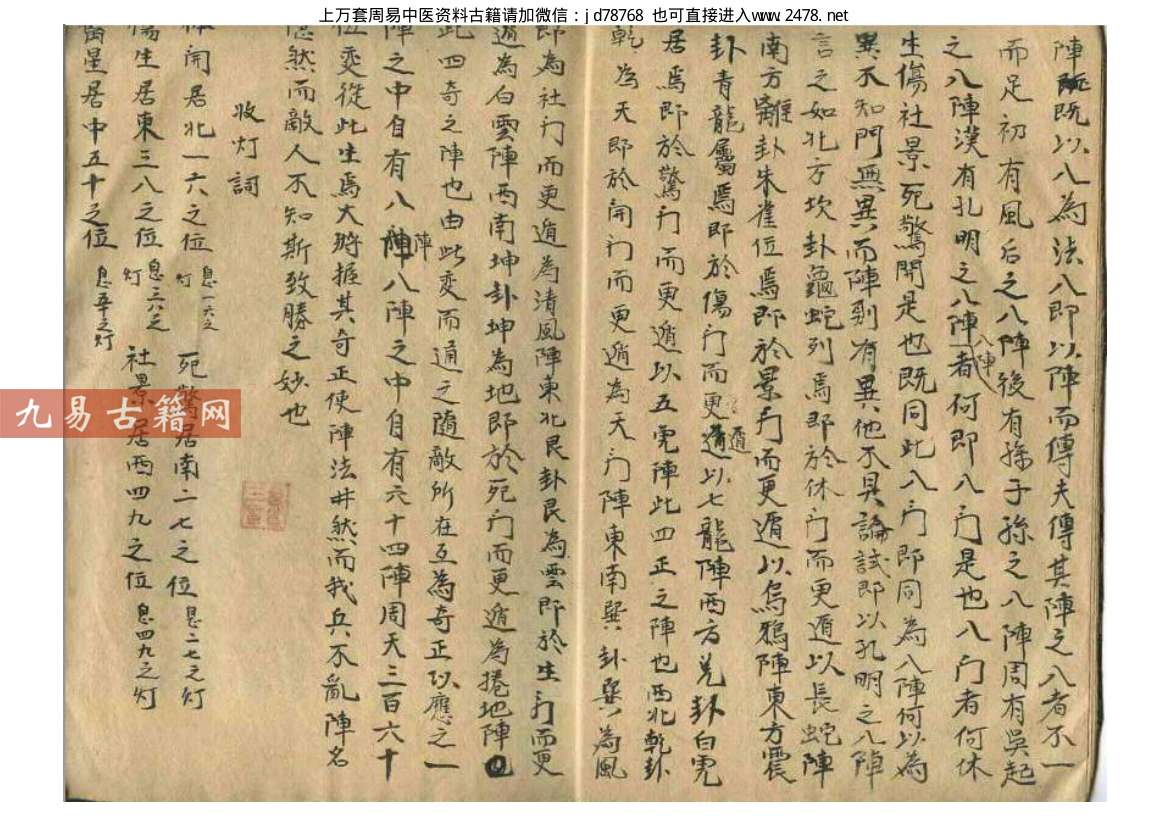 上万套周易中医资料古籍请加微信：jd78768 也可直接进入www.2478.net
陣既以八為法八即以陣而傳夫傳其陣之八者不一
而足初有風后之八陣後有孫子孫之八陣周有吳起
之八陣漢有孔明之八陣八陣者何即八門是也八門者何休
生傷社景死驚開是也既同此八門即同為八陣何以為
異不知門無異而陣則有異他不具論試即以孔明之八陣
言之如北方坎卦龜蛇列焉即於休門而更遁以長蛇陣
南方離卦朱雀位焉即於景門而更遁以烏鴉陣東方震
卦青龍屬焉即於傷門而更遁以七龍陣西方兌卦白虎
居焉即於驚門而更遁以五虎陣此四正之陣也西北乾卦
乾為天即於開門而更遁為天門陣東南巽卦巽為風
即為社門而更遁為清風陣東北艮卦艮為雲即於生門而更
遁為白雲陣西南坤卦坤為地即於死門而更遁為捲地陣
此四奇之陣也由此變而通之隨敵所在互為奇正以應之一
陣之中自有八陣八陣之中自有六十四陣周天三百六十
位變從此生焉大將握其奇正使陣法井然而我兵不亂陣名
然而敵人不知斯致勝之妙也
收灯詞
休開居北一六之位 息一六之灯 死驚居南二七之位 息二七之灯
傷生居東三八之位 息三八之灯 社景居西四九之位 息四九之灯
星居中五十之位 息五十之灯
九易古籍网